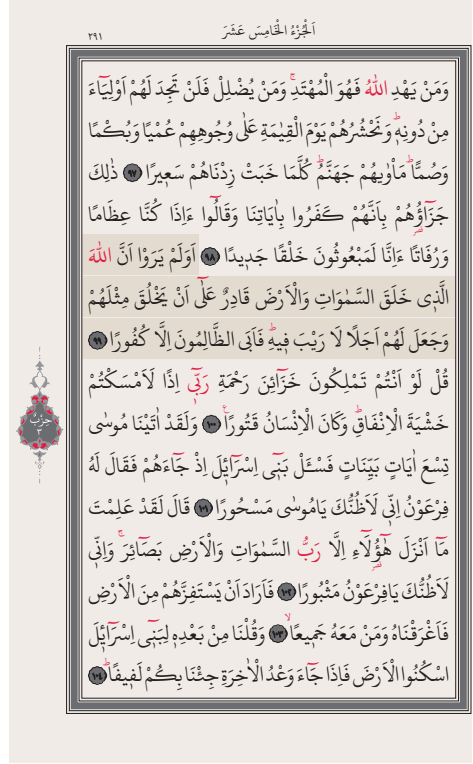 اَلْجُزْءُ الْخَامِسَ عَشَرَ
٢٩١
وَمَنْ يَهْدِ اللّٰهُ فَهُوَ الْمُهْتَدِۚ وَمَنْ يُضْلِلْ فَلَنْ تَجِدَ لَهُمْ اَوْلِيَٓاءَ
مِنْ دُونِه۪ۜ وَنَحْشُرُهُمْ يَوْمَ الْقِيٰمَةِ عَلٰى وُجُوهِهِمْ عُمْيًا وَبُكْمًا
وَصُمًّاۜ مَأْوٰيهُمْ جَهَنَّمُۜ كُلَّمَا خَبَتْ زِدْنَاهُمْ سَع۪يرًا ﴿٩٧﴾ ذٰلِكَ
جَزَٓاؤُ۬هُمْ بِاَنَّهُمْ كَفَرُوا بِاٰيَاتِنَا وَقَالُٓوا ءَاِذَا كُنَّا عِظَامًا
وَرُفَاتًا ءَاِنَّا لَمَبْعُوثُونَ خَلْقًا جَد۪يدًا ﴿٩٨﴾ اَوَلَمْ يَرَوْا اَنَّ اللّٰهَ
الَّذ۪ي خَلَقَ السَّمٰوَاتِ وَالْاَرْضَ قَادِرٌ عَلٰٓى اَنْ يَخْلُقَ مِثْلَهُمْ
وَجَعَلَ لَهُمْ اَجَلًا لَا رَيْبَ ف۪يهِۜ فَاَبَى الظَّالِمُونَ اِلَّا كُفُورًا ﴿٩٩﴾
قُلْ لَوْ اَنْتُمْ تَمْلِكُونَ خَزَٓائِنَ رَحْمَةِ رَبّ۪ٓي اِذًا لَاَمْسَكْتُمْ
خَشْيَةَ الْاِنْفَاقِۜ وَكَانَ الْاِنْسَانُ قَتُورًا۟ ﴿١٠٠﴾ وَلَقَدْ اٰتَيْنَا مُوسٰى
تِسْعَ اٰيَاتٍ بَيِّنَاتٍ فَسْـَٔلْ بَن۪ٓي اِسْرَٓائ۪لَ اِذْ جَٓاءَهُمْ فَقَالَ لَهُ
فِرْعَوْنُ اِنّ۪ي لَاَظُنُّكَ يَامُوسٰى مَسْحُورًا ﴿١٠١﴾ قَالَ لَقَدْ عَلِمْتَ
مَٓا اَنْزَلَ هٰٓؤُ۬لَٓاءِ اِلَّا رَبُّ السَّمٰوَاتِ وَالْاَرْضِ بَصَٓائِرَۚ وَاِنّ۪ي
لَاَظُنُّكَ يَافِرْعَوْنُ مَثْبُورًا ﴿١٠٢﴾ فَاَرَادَ اَنْ يَسْتَفِزَّهُمْ مِنَ الْاَرْضِ
فَاَغْرَقْنَاهُ وَمَنْ مَعَهُ جَم۪يعًاۙ ﴿١٠٣﴾ وَقُلْنَا مِنْ بَعْدِه۪ لِبَن۪ٓي اِسْرَٓائ۪لَ
اسْكُنُوا الْاَرْضَ فَاِذَا جَٓاءَ وَعْدُ الْاٰخِرَةِ جِئْنَا بِكُمْ لَف۪يفًاۜ ﴿١٠٤﴾
حزب